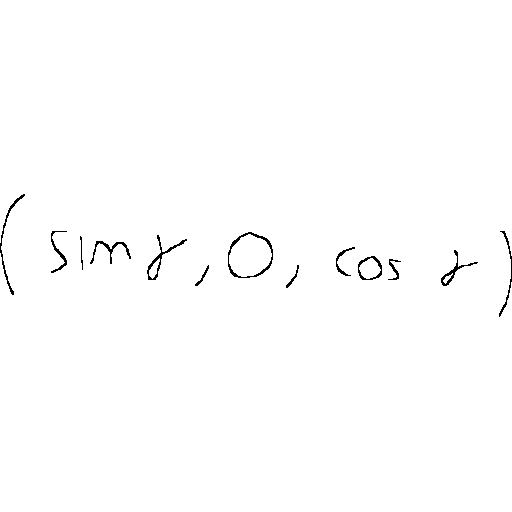 (sin γ, 0, cos γ)